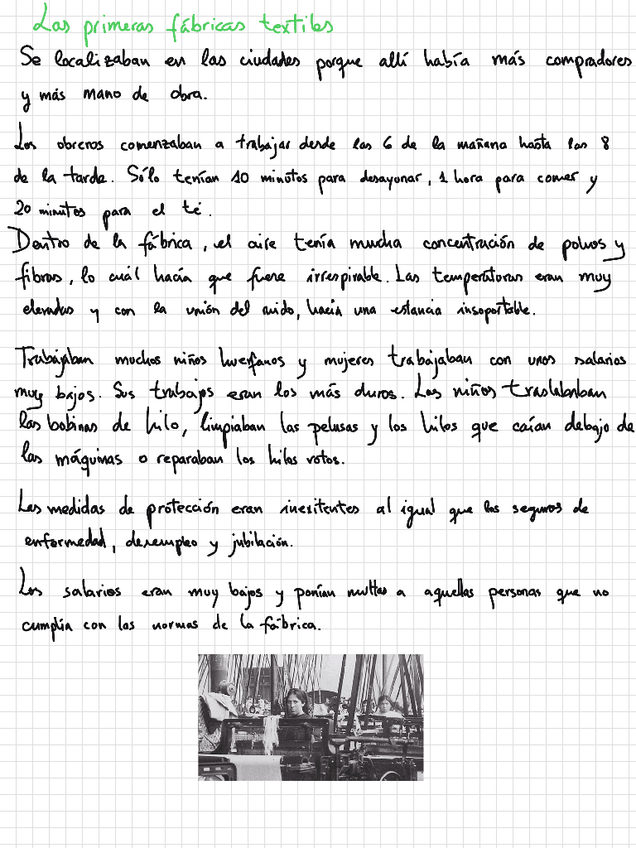 Las primeras fábricas textiles
Se localizaban en las ciudades porque allí había más compradores
y más mano de obra.
Los obreros comenzaban a trabajar desde las 6 de la mañana hasta las 8
de la tarde. Sólo tenían 10 minutos para desayunar, 1 hora para comer y
20 minutos para el té.
Dentro de la fábrica, el aire tenía mucha concentración de polvos y
fibras, lo cuál hacía que fuera irrespirable. Las temperaturas eran muy
elevadas y con la unión del ruido, hacía una estancia insoportable.
Trabajaban muchos niños huerfanos y mujeres trabajaban con unos salarios
muy bajos. Sus trabajos eran los más duros. Los niños trasladaban
las bobinas de hilo, limpiaban las pelusas y los hilos que caían debajo de
las máquinas o reparaban los hilos rotos.
Las medidas de protección eran inexitentes al igual que los seguros de
enfermedad, desempleo y jubilación.
Los salarios eran muy bajos y ponían multas a aquellas personas que no
cumplía con las normas de la fábrica.